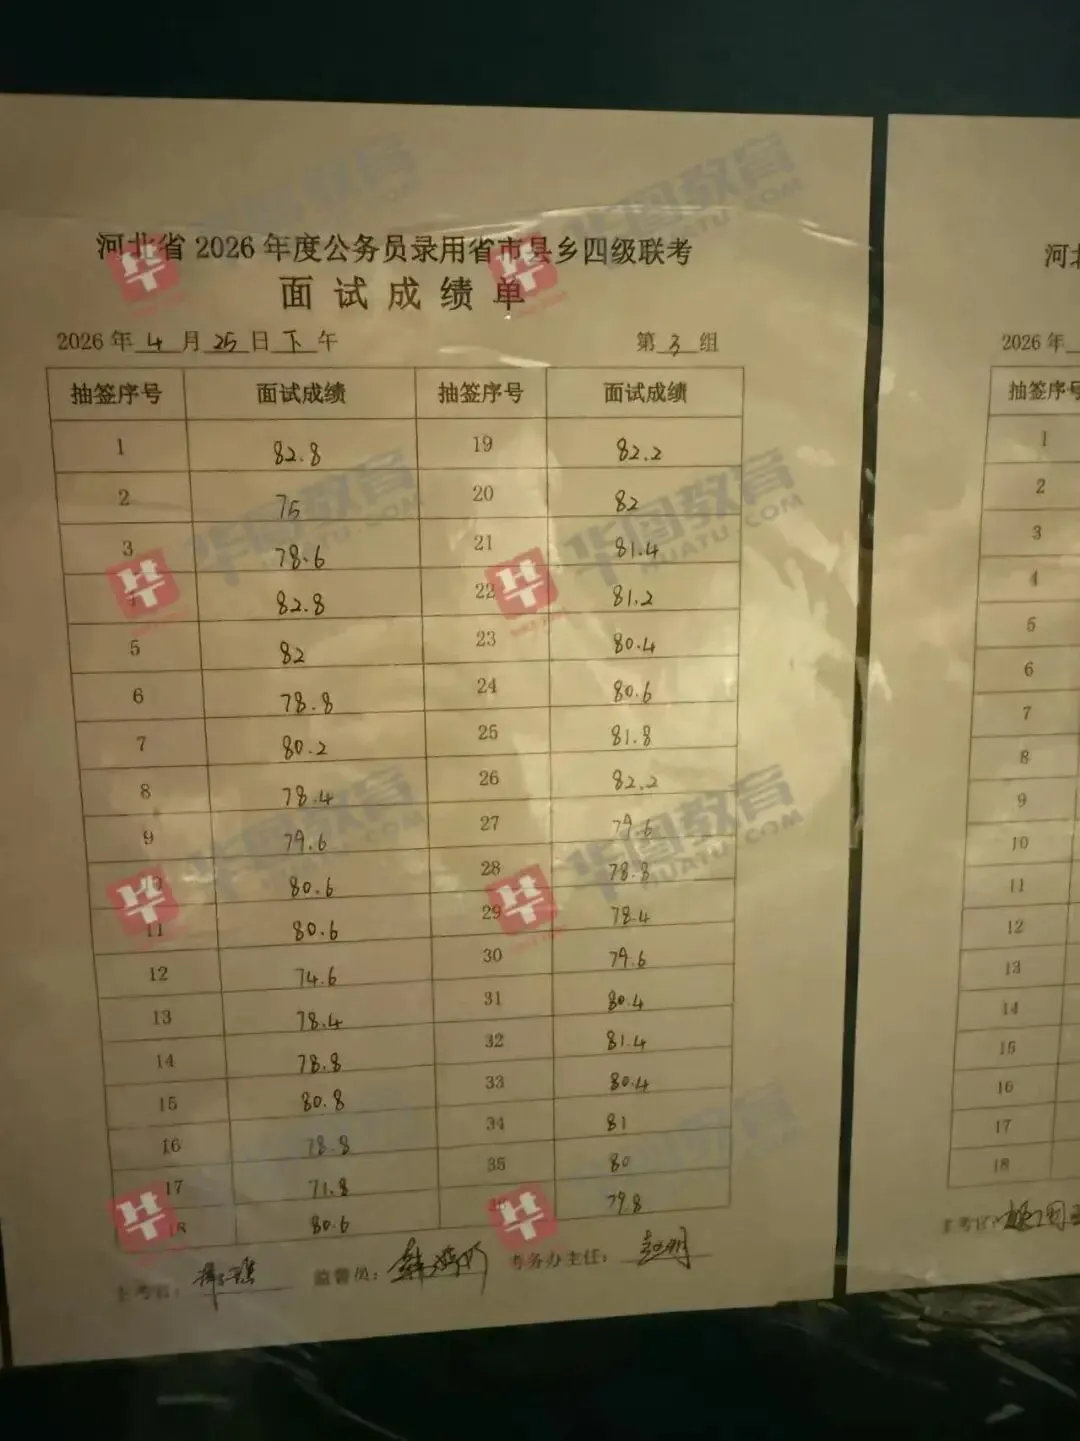 河北省 2026 年度公务员录用省市县乡四级联考
面试成绩单
2026 年 4 月 25 日 下 午 第 3 组
抽签序号 面试成绩 抽签序号 面试成绩
1 82.8 19 82.2
2 75 20 82
3 78.6 21 81.4
4 82.8 22 81.2
5 82 23 80.4
6 78.8 24 80.6
7 80.2 25 81.8
8 78.4 26 82.2
9 79.6 27 79.6
10 80.6 28 78.8
11 80.6 29 78.4
12 74.6 30 79.6
13 78.4 31 80.4
14 78.8 32 81.4
15 80.8 33 80.4
16 78.8 34 81
17 71.8 35 80
18 80.6 79.8
主考官: 监督员: 考务办主任:
河北
2026 年
抽签序号
1
2
3
4
5
6
7
8
9
10
11
12
13
14
15
16
17
18
主考官:
华图教育
HUATU.COM
华图教育
HUATU.COM
华图教育
HUATU.COM
华图教育
HUATU.COM
华图教育
HUATU.COM
华图教育
HUATU.COM